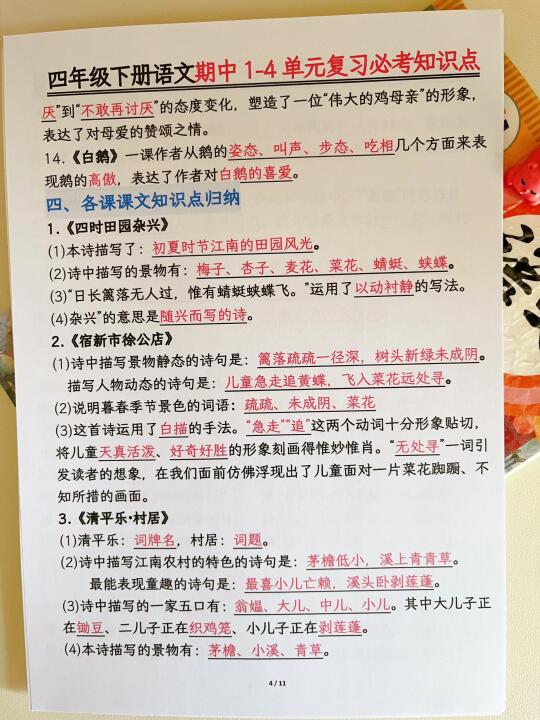 四年级下册语文期中1-4单元复习必考知识点
厌”到“不敢再讨厌”的态度变化，塑造了一位“伟大的鸡母亲”的形象，
表达了对母爱的赞颂之情。
14.《白鹅》一课作者从鹅的姿态、叫声、步态、吃相几个方面来表
现鹅的高傲，表达了作者对白鹅的喜爱。
四、各课课文知识点归纳
1.《四时田园杂兴》
(1)本诗描写了：初夏时节江南的田园风光。
(2)诗中描写的景物有：梅子、杏子、麦花、菜花、蜻蜓、蛱蝶。
(3)“日长篱落无人过，惟有蜻蜓蛱蝶飞。”运用了以动衬静的写法。
(4)杂兴”的意思是随兴而写的诗。
2.《宿新市徐公店》
(1)诗中描写景物静态的诗句是：篱落疏疏一径深，树头新绿未成阴。
描写人物动态的诗句是：儿童急走追黄蝶，飞入菜花远处寻。
(2)说明暮春季节景色的词语：疏疏、未成阴、菜花
(3)这首诗运用了白描的手法。“急走”“追”这两个动词十分形象贴切，
将儿童天真活泼、好奇好胜的形象刻画得惟妙惟肖。“无处寻”一词引
发读者的想象，在我们面前仿佛浮现出了儿童面对一片菜花踟蹰、不
知所措的画面。
3.《清平乐·村居》
(1)清平乐：词牌名，村居：词题。
(2)诗中描写江南农村的特色的诗句是：茅檐低小，溪上青青草。
最能表现童趣的诗句是：最喜小儿亡赖，溪头卧剥莲蓬。
(3)诗中描写的一家五口有：翁媪、大儿、中儿、小儿。其中大儿子正
在锄豆、二儿子正在织鸡笼、小儿子正在剥莲蓬。
(4)本诗描写的景物有：茅檐、小溪、青草。
4 / 11